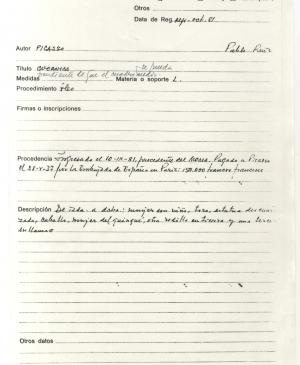 Otros
Data de Reg. sep.-oct. 81
Autor PICASSO Pablo Ruiz
Título GUERNICA
Medidas pendiente de que el cuadro Materia o soporte L.
Procedimiento óleo
Firmas o inscripciones
Procedencia Ingresado el 10-IX-81, procedente del MOMA. Pagado a Picasso
el 28-V-37 por la Embajada de España en París: 150.000 francos franceses
Descripción De izda. a dcha.: mujer con niño, toro, estatua
caballo, mujer del quinqué, otra y una
en llamas
Otros datos